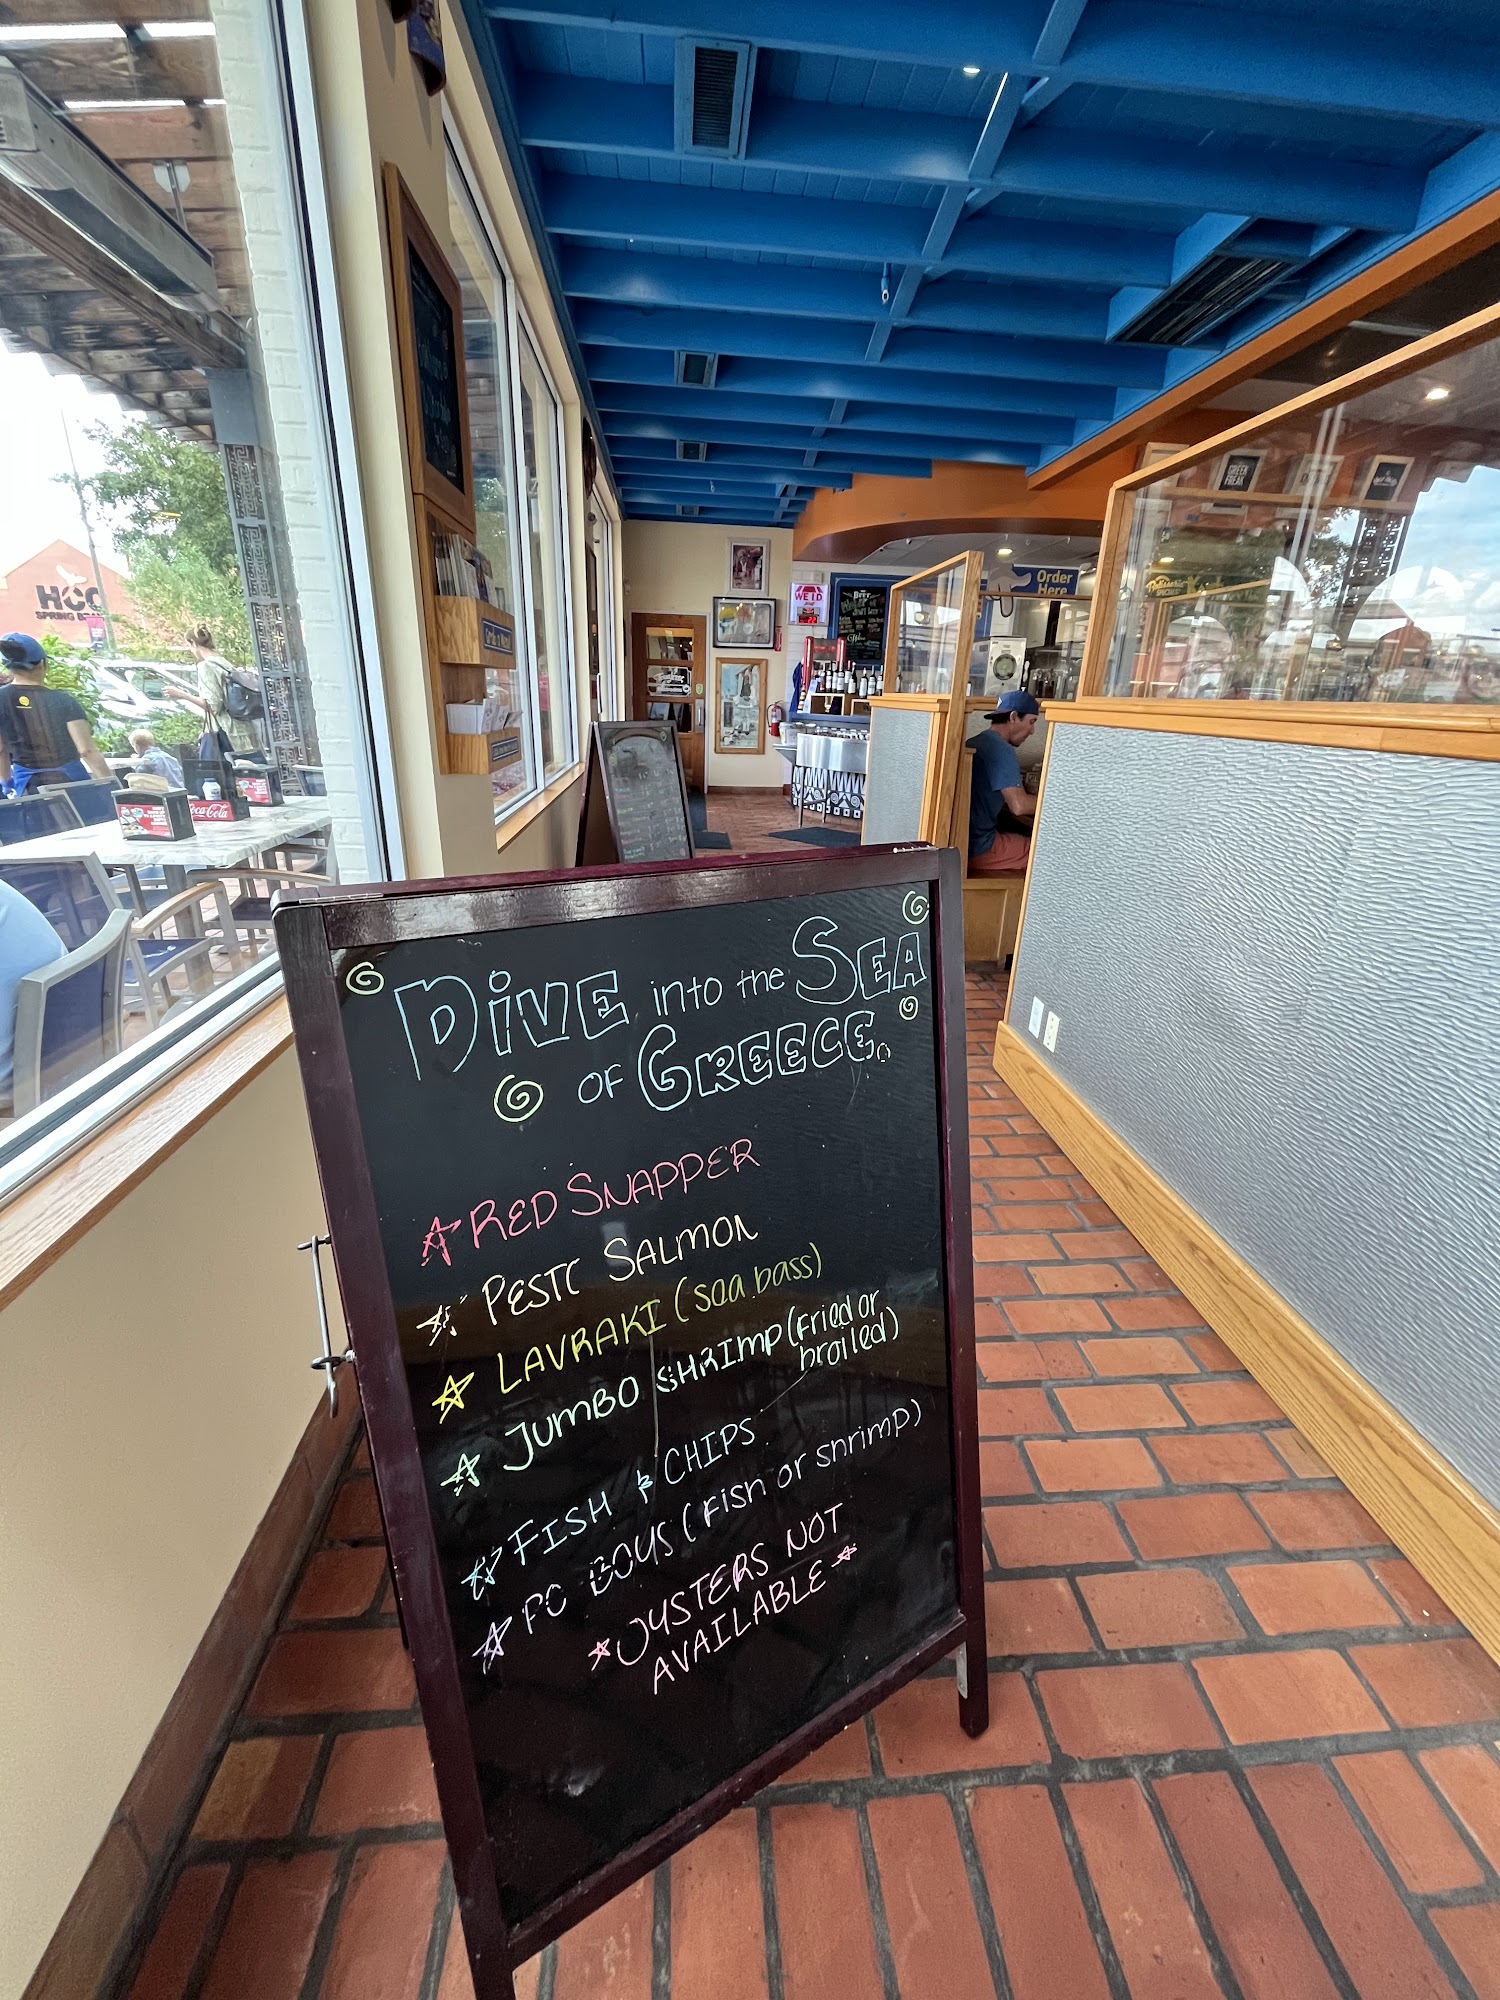 DIVE into the SEA
OF GREECE.
RED SNAPPER
PESTO SALMON
LAVRAKI (sea bass)
JUMBO SHRIMP (Fried or
broiled)
FISH & CHIPS
PO BOYS (FISH or shrimp)
*OYSTERS NOT
AVAILABLE*
Order
Here
GREEK
FREAK
HCC
SPRING
Coca-Cola
BEER